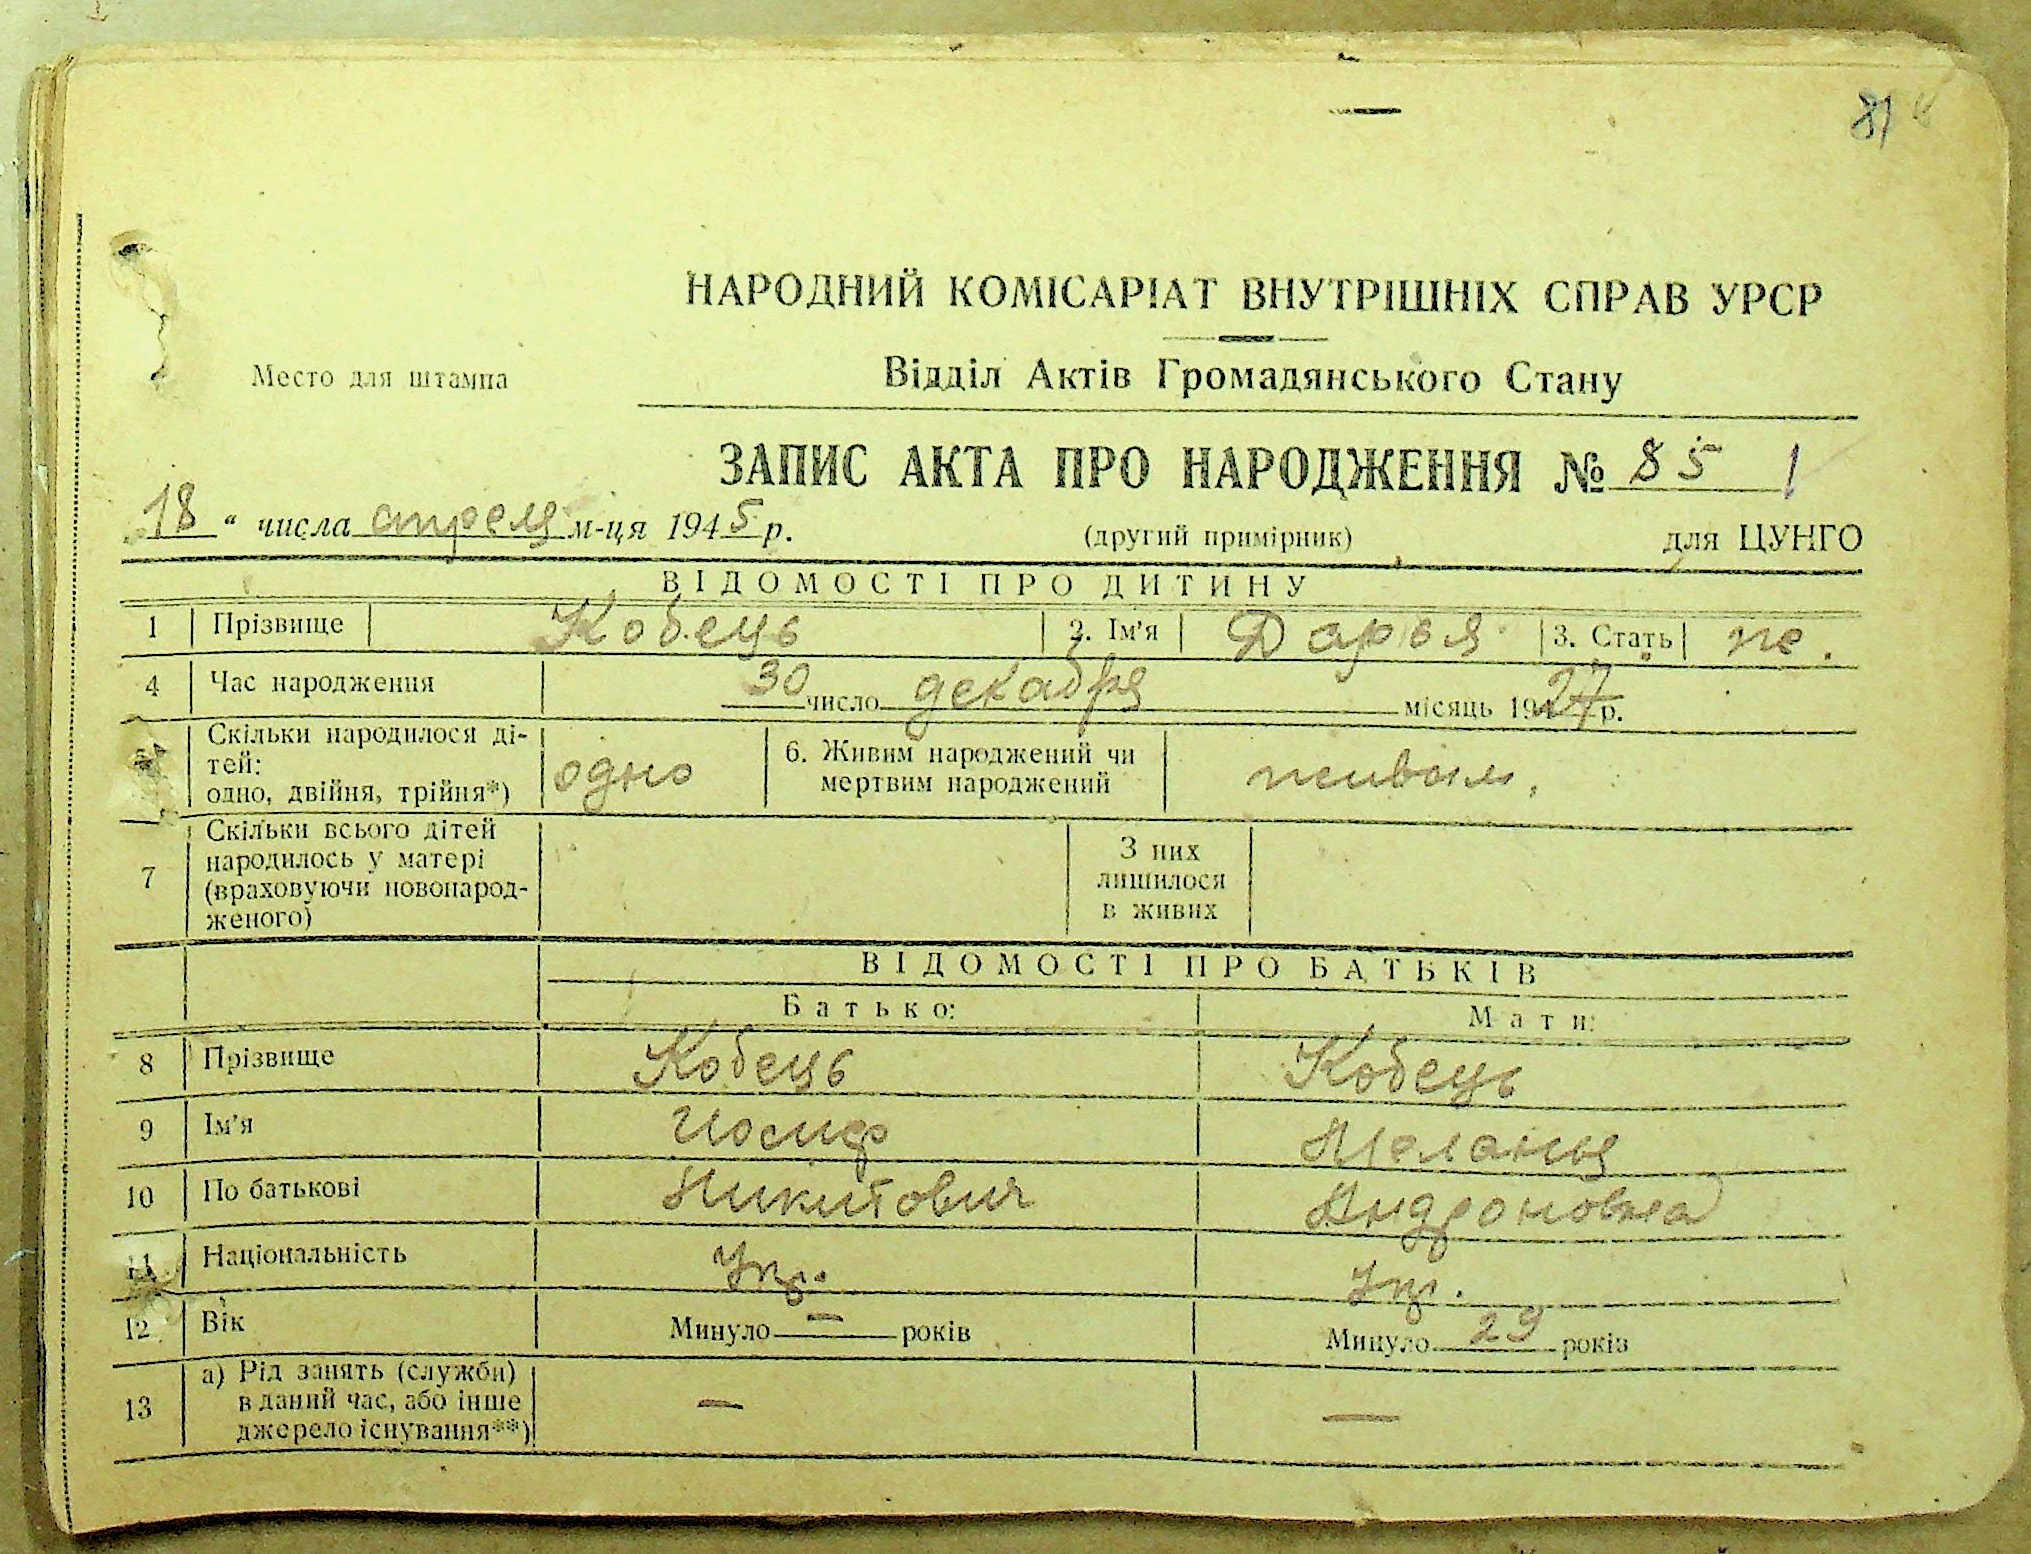 81
НАРОДНИЙ КОМІСАРІАТ ВНУТРІШНІХ СПРАВ УРСР
Место для штампа
Відділ Актів Громадянського Стану
ЗАПИС АКТА ПРО НАРОДЖЕННЯ № 85
18 " числа апреля м-ця 1945 р.
(другий примірник) для ЦУНГО
ВІДОМОСТІ ПРО ДИТИНУ
1 Прізвище Кобець 2. Ім'я Дарья 3. Стать
4 Час народження 30 число декабря місяць 1927 р.
Скільки народилося ді-
тей:
одно, двійня, трійня*) одно 6. Живим народжений чи
мертвим народжений живым.
7 Скільки всього дітей
народилось у матері
(враховуючи новонарод-
женого) З них
лишилося
в живих
ВІДОМОСТІ ПРО БАТЬКІВ
Батько: Мати:
8 Прізвище Кобець Кобець
9 Ім'я Иосиф Меланья
10 По батькові Никитович Андроновна
11 Національність Укр. Укр.
12 Вік Минуло — років Минуло 29 років
13 а) Рід занять (служби)
в даний час, або інше
джерело існування**) — —